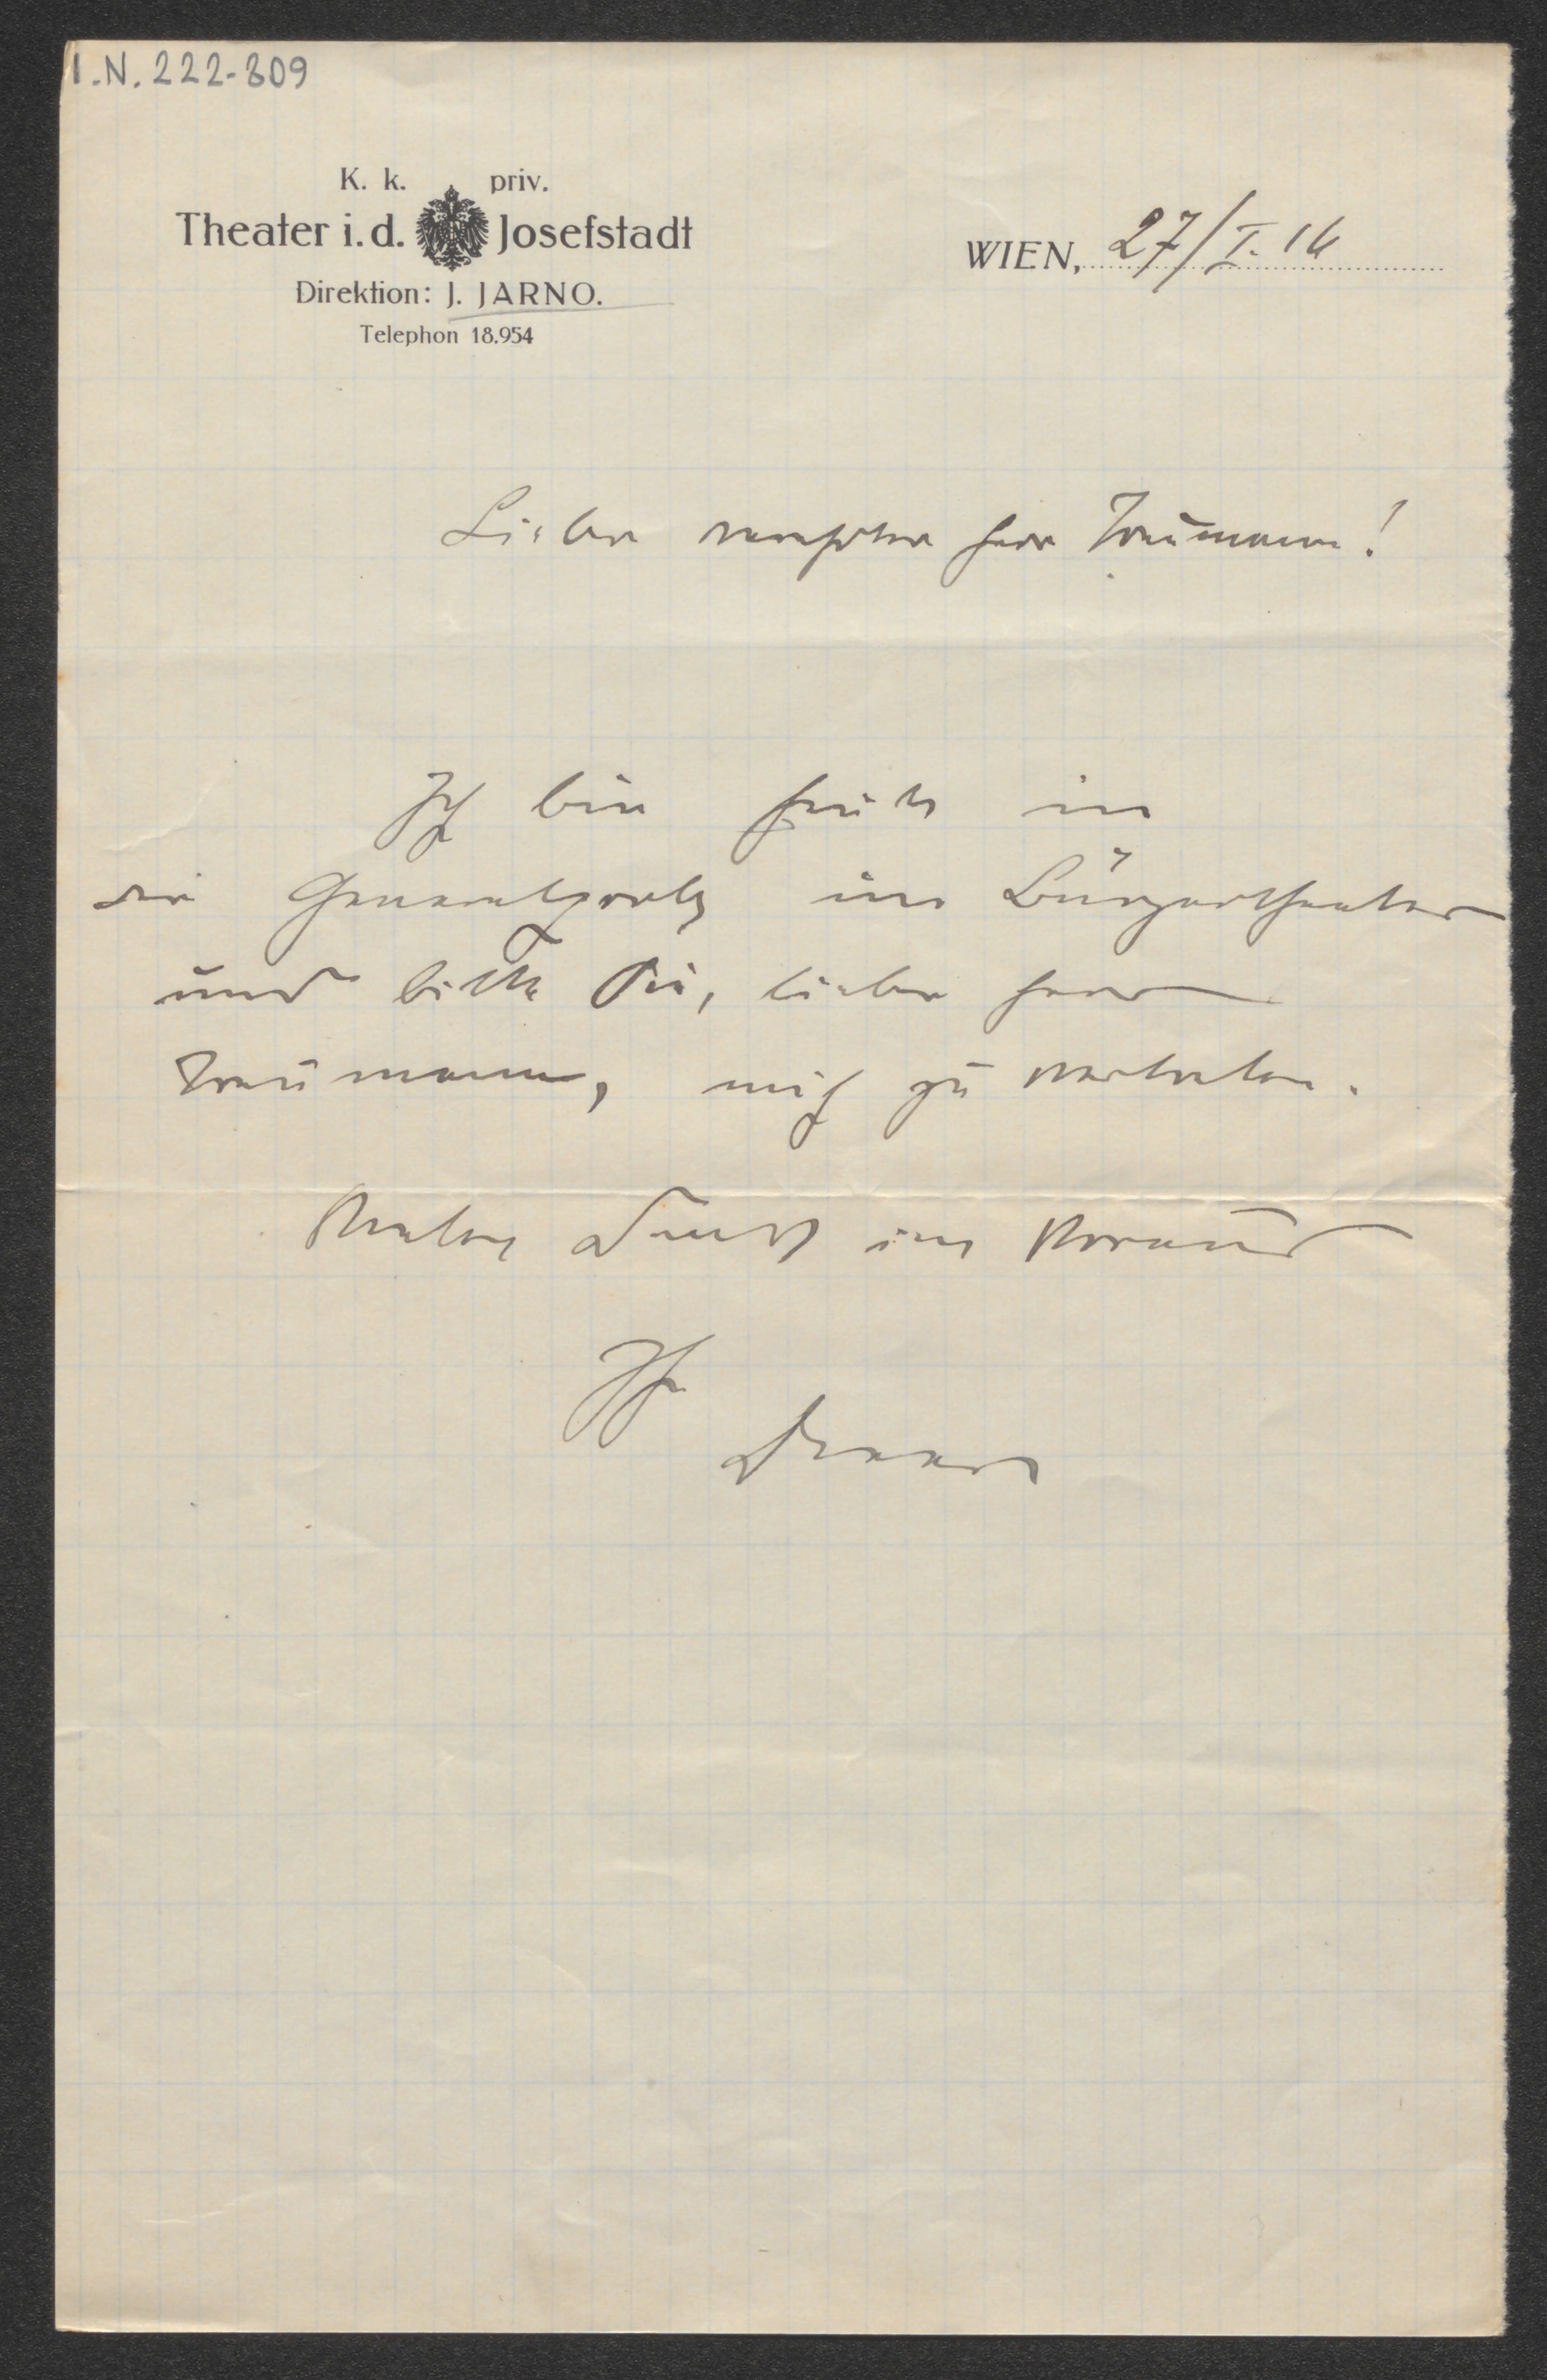 I.N. 222-809
K. k. priv.
Theater i. d. Josefstadt
Direktion: J. JARNO.
Telephon 18.954
WIEN, 27/I. 16
Lieber verehrter Herr Traumann!
Ich bin heute in
der Generalprobe im Bürgertheater
und bitte Sie, lieber Herr
Traumann, mich zu vertreten.
Vielen Dank im Voraus
Ihr